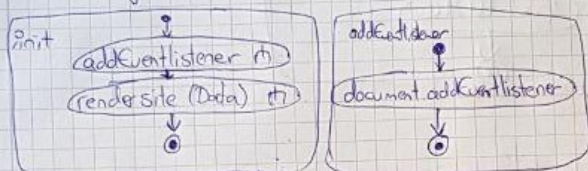 init
addEventlistener
rendersite (Data)
addEventlistener
document.addEventlistener